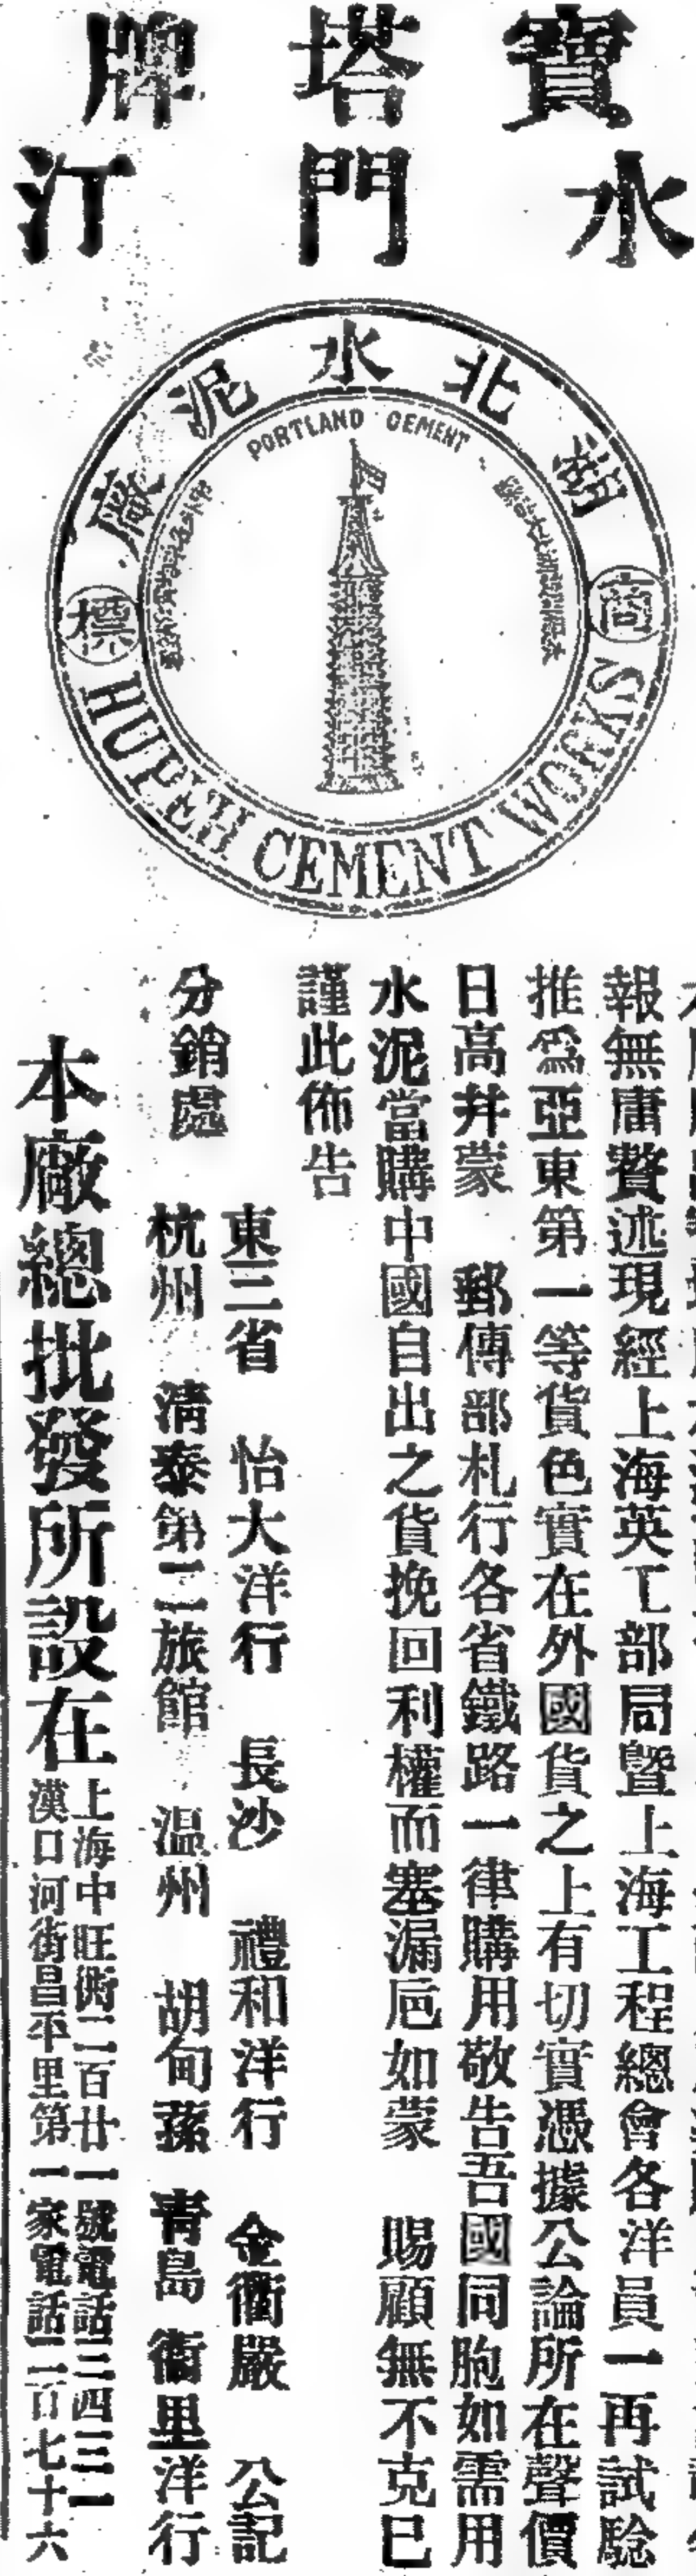 寶塔牌
水門汀
湖北水泥廠
PORTLAND CEMENT
商標
HUPEH CEMENT WORKS
報無庸贅述現經上海英工部局曁上海工程總會各洋員一再試騐
推爲亞東第一等貨色實在外國貨之上有切實憑據公論所在聲價
日高幷蒙 郵傳部札行各省鐵路一律購用敬告吾國同胞如需用
水泥當購中國自出之貨挽回利權而塞漏巵如蒙 賜顧無不克已
謹此佈告
分銷處
東三省 怡大洋行 長沙 禮和洋行 金衢嚴 公記
杭州 淸泰第二旅館 温州 胡甸蓀 靑島 衞里洋行
本廠總批發所設在
上海中旺街二百廿一號電話三四三一
漢口河街昌平里第一家電話二百七十六